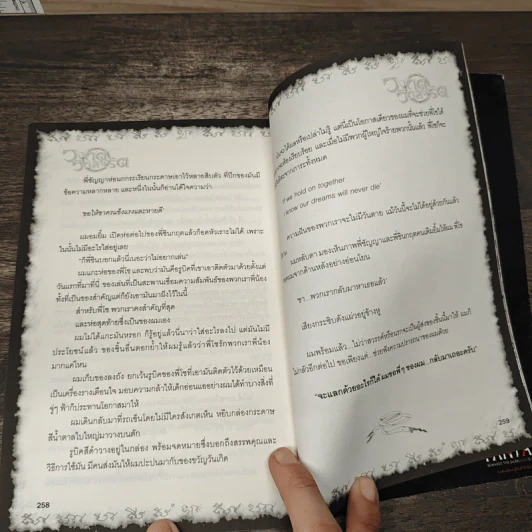 พี่ชัญญาห่อนกกระเรียนกระดาษเอาไว้หลายสิบตัว ที่ปีกของมันมี
ข้อความหลากหลาย และหนึ่งในนั้นก็อ่านได้ใจความว่า
'ขอให้ธาดงแข็งแรงและหายดี'
ผมอมยิ้ม เปิดห่อต่อไปของพี่ชินกฤตแล้วก็อดหัวเราะไม่ได้ เพราะ
ในนั้นไม่มีอะไรใส่อยู่เลย
"ก็พี่ชินบอกแล้วนี่นะว่าไม่อยากเล่น"
ผมแกะห่อของพี่โช และพบว่ามันคือรูบิคที่เขาเอาติดตัวมาด้วยตั้งแต่
วันแรกที่มาที่นี่ ของเล่นที่เป็นสะพานเชื่อมความสัมพันธ์ของพวกเราพี่น้อง
ทั้งที่เป็นของสำคัญแต่ก็ยังเอามันมาฝังไว้ในนี้
สำหรับพี่โช พวกเราคงสำคัญที่สุด
และห่อสุดท้ายซึ่งเป็นของผมเอง
ผมไม่ได้แกะมันหรอก ก็รู้อยู่แล้วนี่นาว่าใส่อะไรลงไป แต่มันไม่มี
ประโยชน์แล้ว ของชิ้นอื่นตอกย้ำให้ผมรู้แล้วว่าพี่โชรักพวกเราพี่น้อง
มากแค่ไหน
ผมเก็บของลงถัง ยกเว้นรูบิคของพี่โชที่เอามันติดตัวไว้ด้วยเหมือน
เป็นเครื่องรางเตือนใจ มอบความกล้าให้เด็กอ่อนแออย่างผมได้ทำบางสิ่งที่
จู่ๆ ฟ้าก็ประทานโอกาสมาให้
ผมเดินกลับมาที่รถเข็นโดยไม่มีใครสังเกตเห็น หยิบกล่องกระดาษ
สีน้ำตาลใบใหญ่มาวางบนตัก
รูบิคสีดำวางอยู่ในกล่อง พร้อมจดหมายซึ่งบอกถึงสรรพคุณและ
วิธีการใช้มัน มีคนส่งมันให้ผมปะปนมากับของขวัญวันเกิด
258
ได้ผลหรือเปล่าไม่รู้ แต่นี่เป็นโอกาสเดียวของผมที่จะช่วยพี่โชได้
และเมื่อไม่มีพวกผู้ใหญ่ใจร้ายพวกนั้นแล้ว พี่โชก็จะ
'If we hold on together
I know our dreams will never die'
ความฝันของพวกเราจะไม่มีวันตาย แม้วันนี้จะไม่ได้อยู่ด้วยกันแล้ว
ผมหลับตา มองเห็นภาพพี่ชัญญาและพี่ชินกฤตคนเดิมยิ้มให้ผม พี่โช
ผมจากด้านหลังอย่างอ่อนโยน
'ธา...พวกเรากลับมาหาเธอแล้ว'
เสียงกระซิบดังแผ่วอยู่ข้างหู
ผมพร้อมแล้ว
"จะแลกด้วยอะไรก็ได้ ผมขอพี่ๆ ของผม...กลับมาเถอะครับ"
259